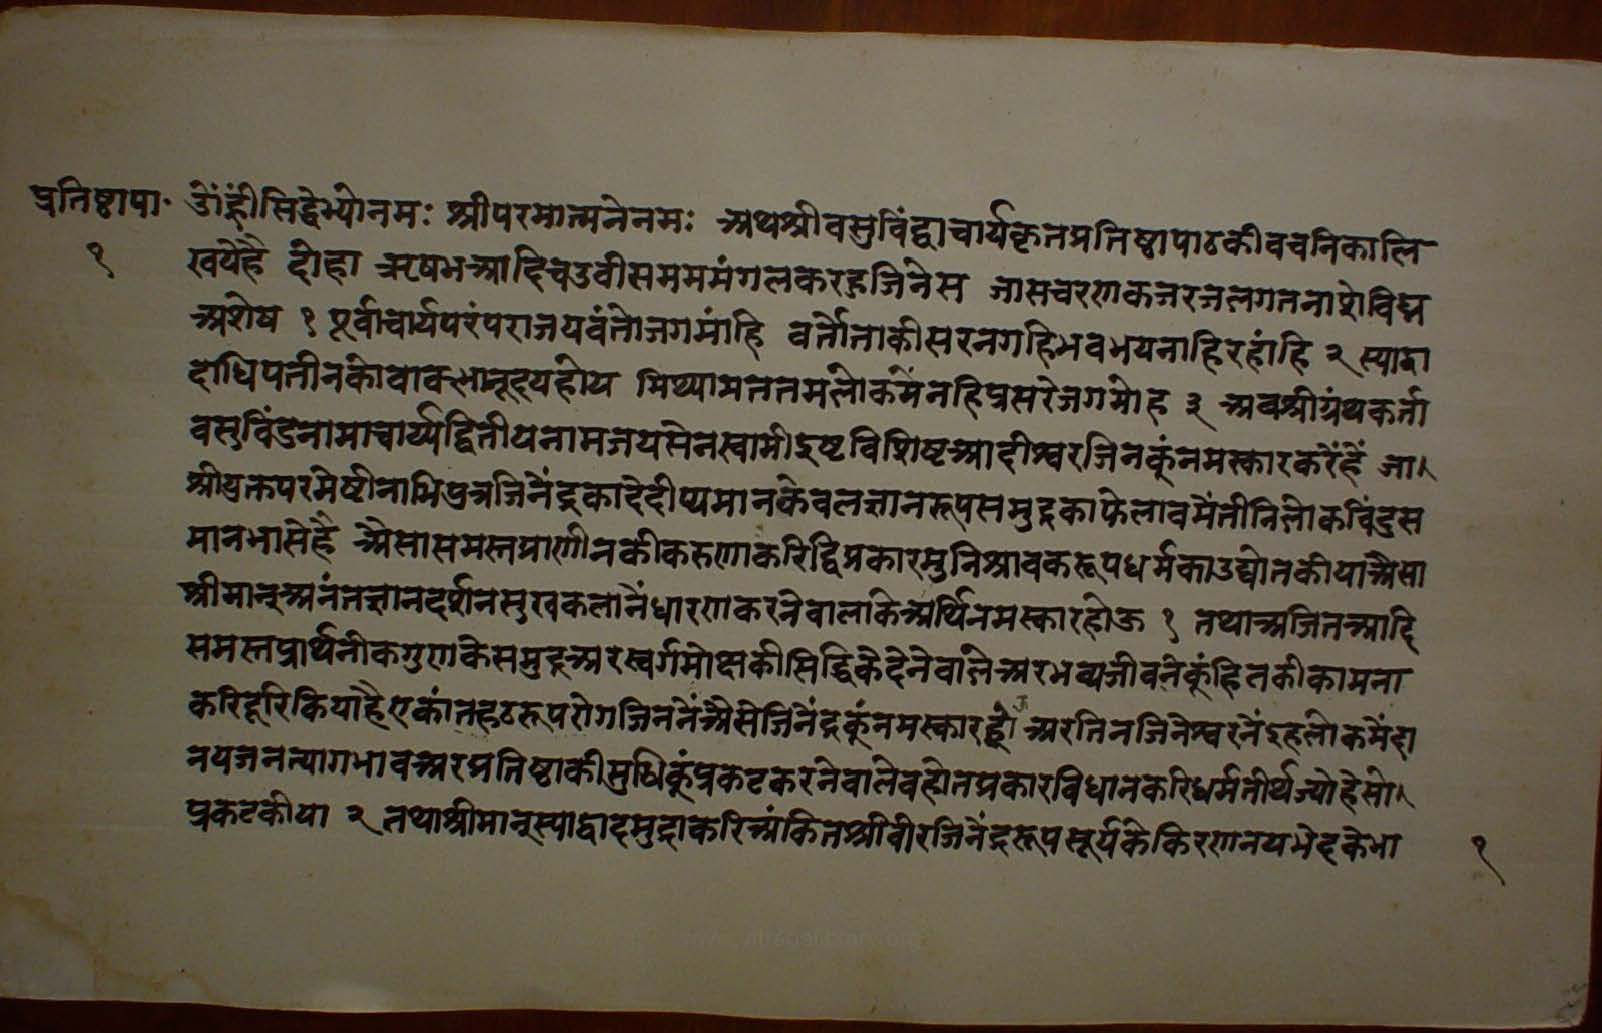 प्रतिष्ठापा. ॐह्रींसिद्धेभ्योनमः श्रीपरमात्मनेनमः अथश्रीवसुविंद्वाचार्यकृतप्रतिष्ठापाठकीवचनिकालि
१ खयेहै दोहा ऋषभआदिचउवीसमममंगलकरहुजिनेस जासचरणकजरजलगतनाशेविघ्न
अशेष १ पूर्वाचार्यपरंपराजयवंतोजगमांहि वर्तोताकीसरनगहिभवभयनाहिरहांहि २ स्याद्वा
दाधिपतीनकोवाक्भानूदयहोय मिथ्यामततमलोकमेंनहिप्रसरेजगमोह ३ अबश्रीग्रंथकर्ता
वसुविंडुनामाचार्य्यद्वितीयनामजयसेनस्वामीइष्टविशिष्टआदीश्वरजिनकूंनमस्कारकरेंहें जा।
श्रीयुक्तपरमेष्टीनाभिपुत्रजिनेंद्रकादेदीप्यमानकेवलज्ञानरूपसमुद्रकाफेलावमेंतीनिलोकबिंडुस
मानभासेहै अैसासमस्तप्राणीनकीकरुणाकरिद्विप्रकारमुनिश्रावकरूपधर्मकाउद्योतकीयाअैसा
श्रीमान्अनंतज्ञानदर्शनसुखकलानैंधारणकरनेवालाकेअर्थिनमस्कारहोऊ १ तथाअजितआदि
समस्तप्रार्थनीकगुणकेसमुद्रअरस्वर्गमोक्षकीसिद्धिकेदेनेवालेअरभव्यजीवनेकूंहितकीकामना
करिदूरिकियाहैएकांतहठरूपरोगजिननेंअैसेजिनेंद्रकूंनमस्कारहो अरतिनजिनेश्वरनेंइहलोकमेंदा
नयजनत्यागभावअरप्रतिष्ठाकीसुधिकूंप्रकटकरनेवालेवहोतप्रकारविधानकरिधर्मतीर्थज्योहेसो।
प्रकटकीया २ तथाश्रीमान्स्याद्वादमुद्राकरिअंकितश्रीवीरजिनेंद्ररूपसूर्यकेकिरणनयभेदकेभा
१